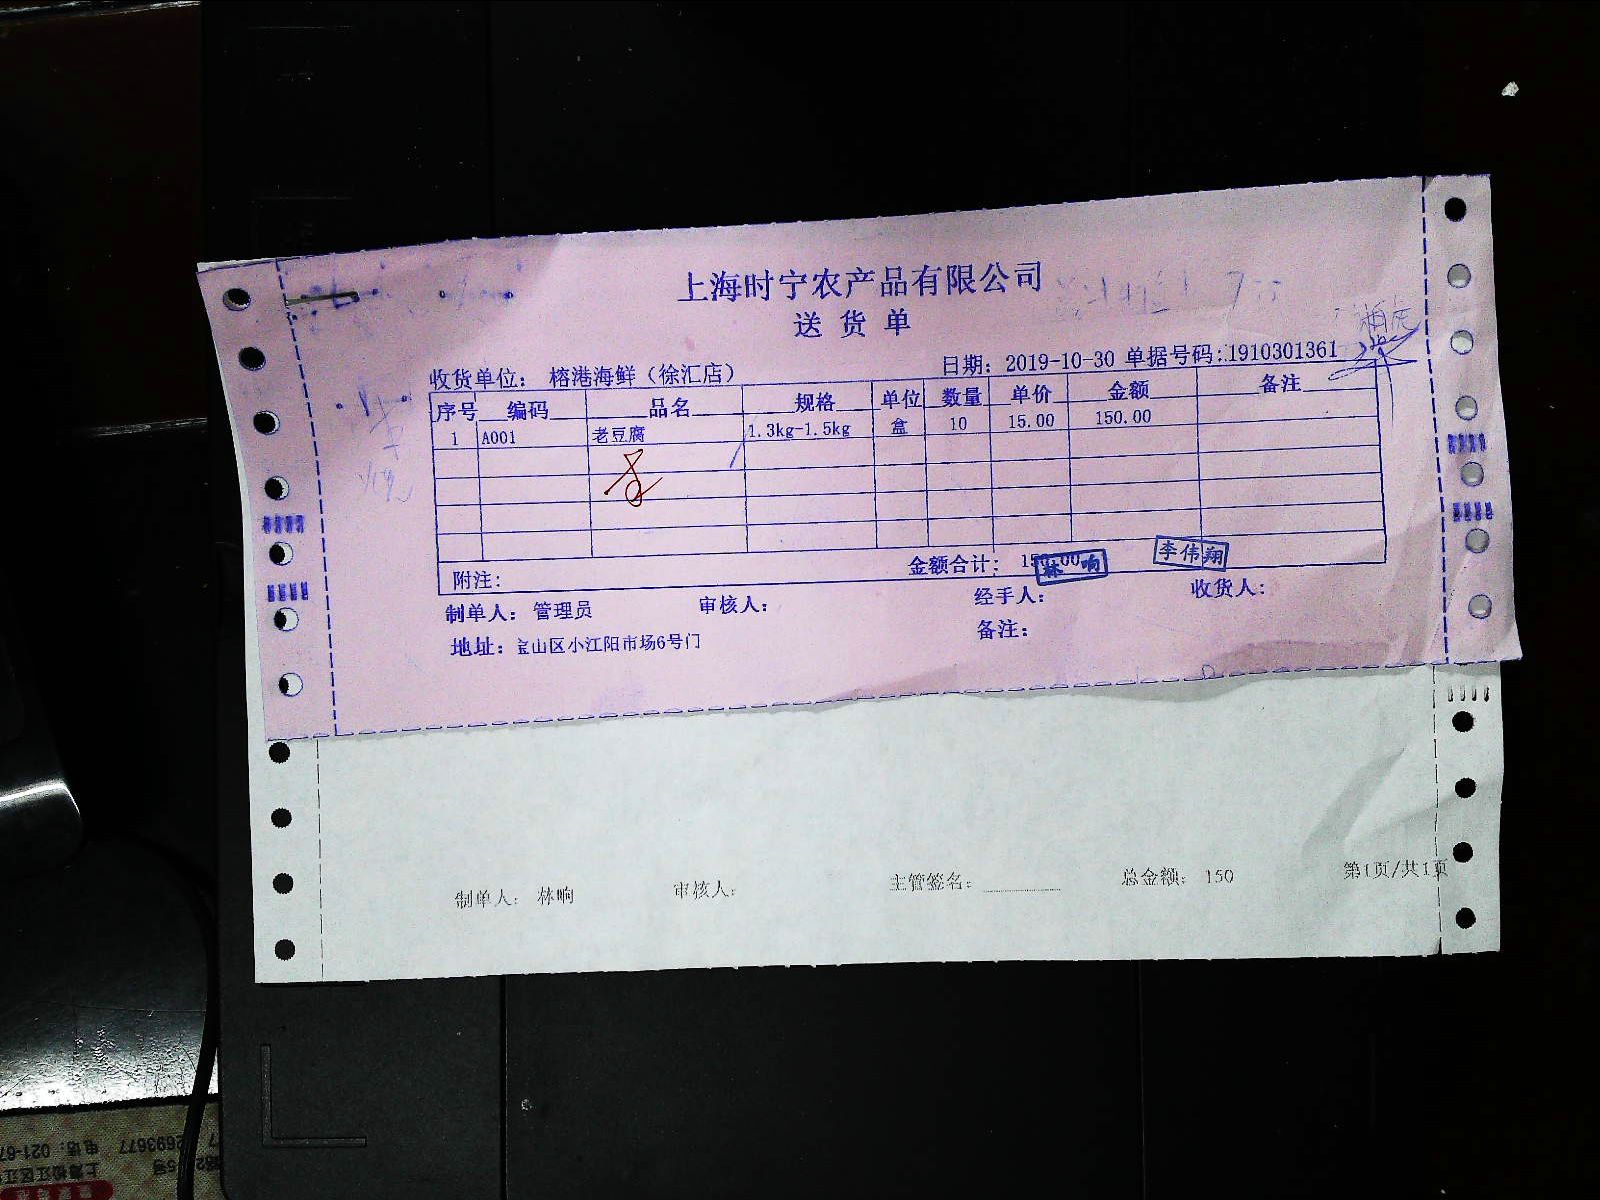 上海时宁农产品有限公司
送货单
收货单位: 榕港海鲜（徐汇店） 日期: 2019-10-30 单据号码:1910301361
序号 编码 品名 规格 单位 数量 单价 金额 备注
1 A001 老豆腐 1.3kg-1.5kg 盒 10 15.00 150.00
附注: 金额合计: 150.00
林响 李伟翔
制单人: 管理员 审核人: 经手人: 收货人:
地址: 宝山区小江阳市场6号门 备注:
制单人: 林响 审核人: 主管签名: 总金额: 150 第1页/共1页